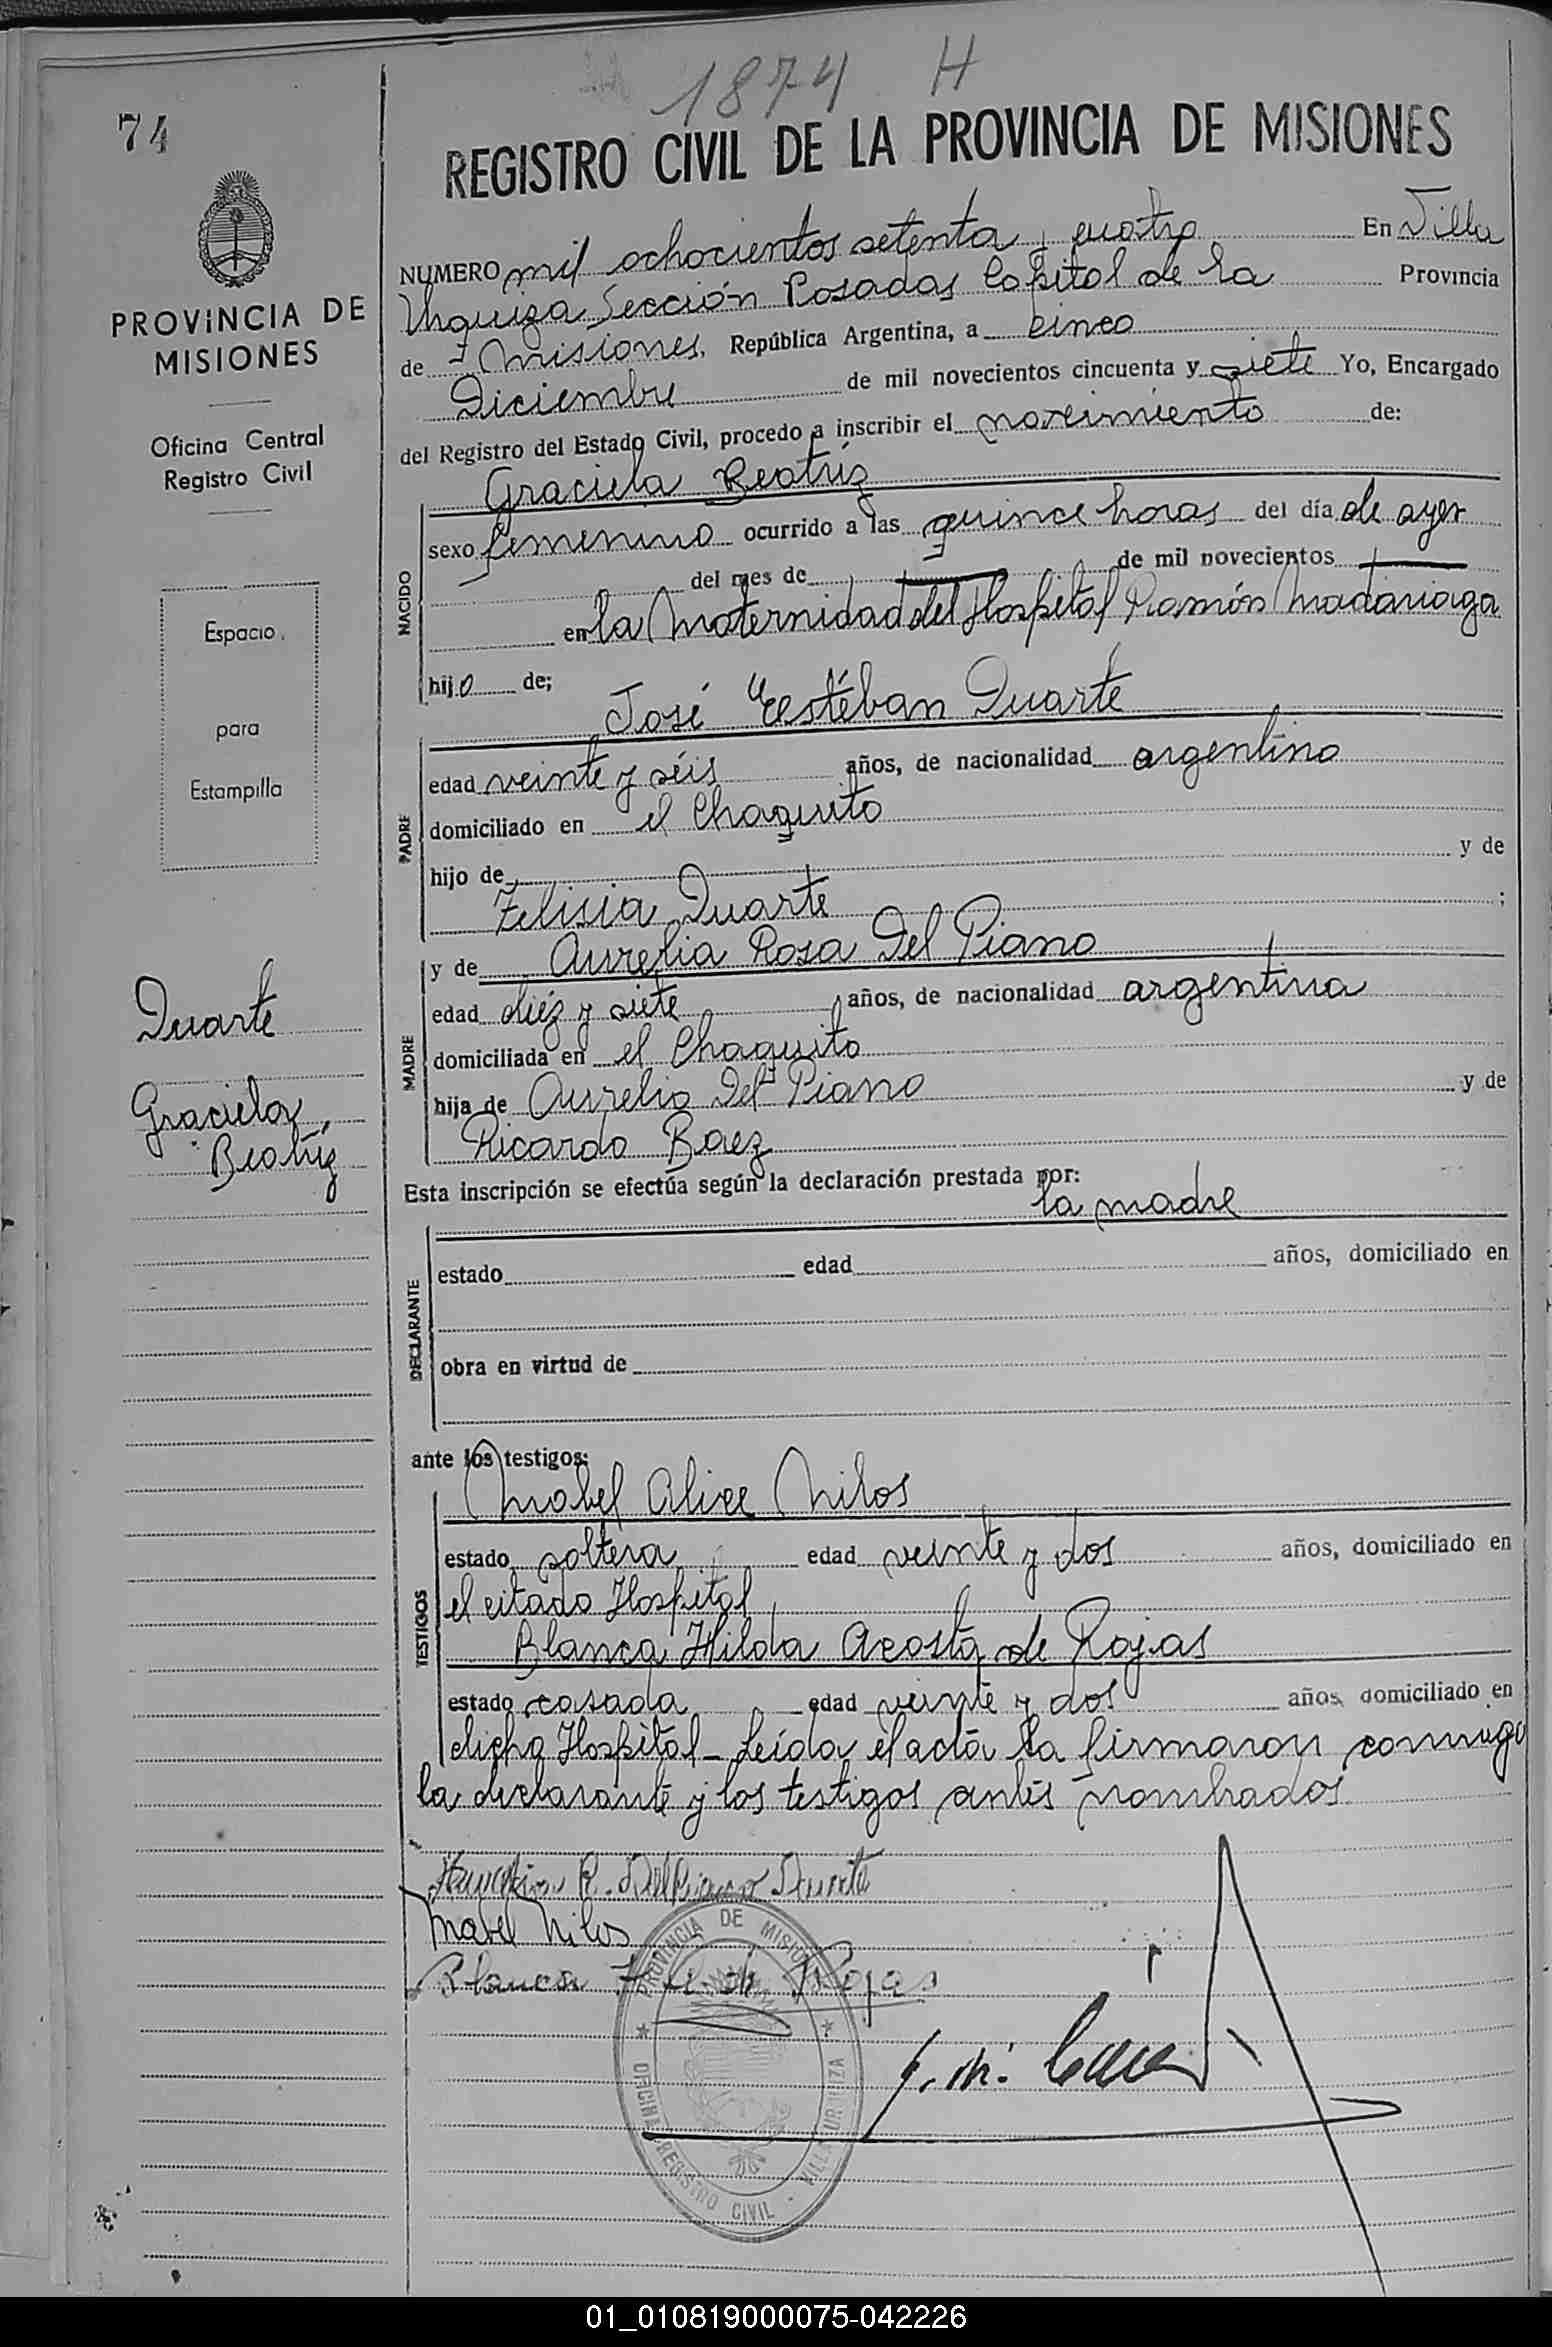 1874 H
74
REGISTRO CIVIL DE LA PROVINCIA DE MISIONES
PROVINCIA DE
MISIONES
Oficina Central
Registro Civil
Espacio
para
Estampilla
Duarte
Graciela
Beatriz
NUMERO mil ochocientos setenta y cuatro En Villa
Urquiza Sección Posadas Capital de la Provincia
de Misiones, República Argentina, a cinco
Diciembre de mil novecientos cincuenta y siete Yo, Encargado
del Registro del Estado Civil, procedo a inscribir el nacimiento de:
Graciela Beatriz
NACIDO
sexo femenino ocurrido a las quince horas del día de ayer
del mes de de mil novecientos
en la Maternidad del Hospital Ramón Madariaga
hijo de;
José Estéban Duarte
PADRE
edad veinte y séis años, de nacionalidad argentino
domiciliado en el Chaquito
hijo de y de
Felisia Duarte ;
y de Aurelia Rosa Del Piano
MADRE
edad diéz y siete años, de nacionalidad argentina
domiciliada en el Chaquito
hija de Aurelio Del Piano y de
Ricarda Baez
Esta inscripción se efectúa según la declaración prestada por:
la madre
DECLARANTE
estado edad años, domiciliado en
obra en virtud de
ante los testigos:
Mabel Alice Milos
TESTIGOS
estado soltera edad veinte y dos años, domiciliado en
el citado Hospital
Blanca Hilda Acosta de Rojas
estado casada edad veinte y dos años, domiciliado en
dicho Hospital - Leída el acta la firmaron conmigo
la declarante y los testigos antes nombrados
R. DelPiano Duarte
Mabel Milos
Blanca H. de Rojas
PROVINCIA DE MISIONES
OFICINA REGISTRO CIVIL - VILLA URQUIZA
01_010819000075-042226